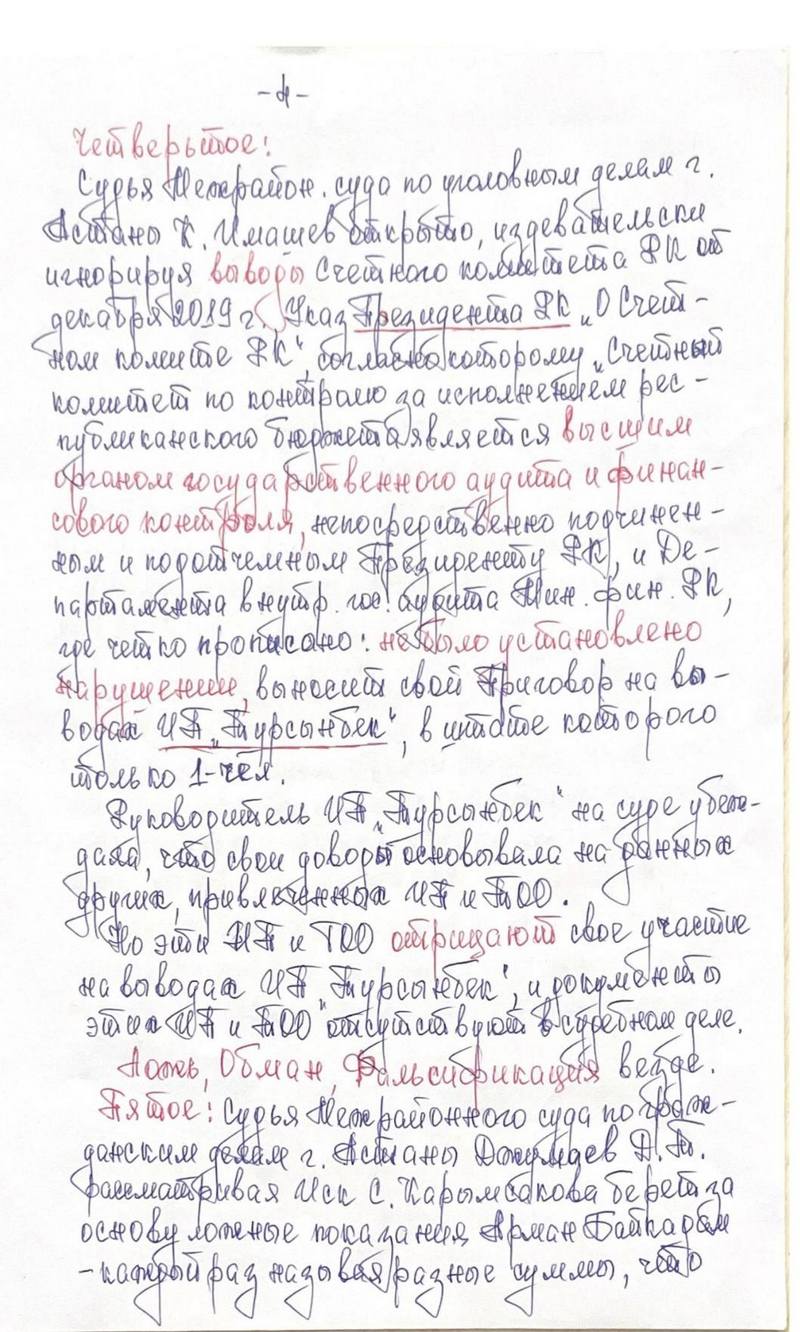 -4-
Четверьтое:
Судья Межрайон. суда по уголовным делам г.
Астаны К. Имашев открыто, издевательски
игнорируя выводы Счетного комитета РК от
декабря 2019 г. Указ Президента РК „О Счет-
ном комите РК", согласно которому „Счетный
комитет по контролю за исполнением рес-
публиканского бюджета является высшим
органом государственного аудита и финан-
сового контроля, непосредственно подчинен-
ным и подотчетным Президенту РК, и Де-
партамента внутр. гос. аудита Мин. фин. РК,
где четко прописано: не было установлено
нарушении, выносит свой Приговор на вы-
водах ИП „Турсынбек", в штате которого
только 1-чел.
Руководитель ИП „Турсынбек" на суде убеж-
дала, что свои доводы основывала на данных
других, привлеченных ИП и ТОО.
Но эти ИП и ТОО отрицают свое участие
на выводах ИП „Турсынбек", и документы
этих ИП и ТОО отсутствуют в судебном деле.
Ложь, Обман, Фальсификация везде.
Пятое: Судья Межрайонного суда по граж-
данским делам г. Астаны Джумаев Д.Т.
рассматривая Иск С. Карымсакова берет за
основу ложные показания Арман Байкадам
- каждый раз называя разные суммы, что